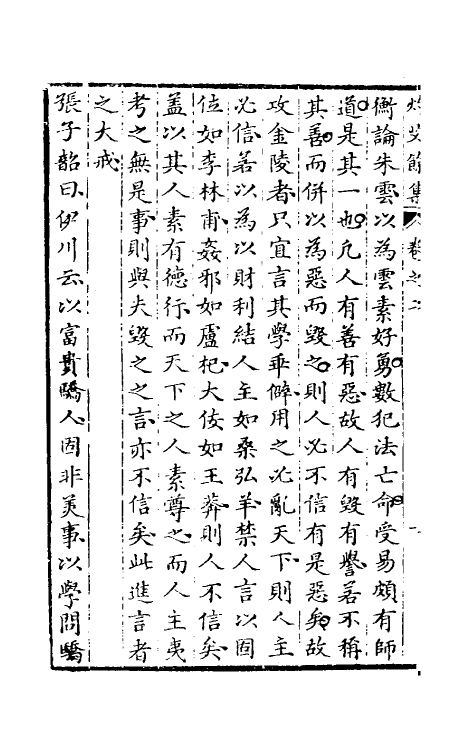 衡論朱雲以為雲素好勇數犯法亡命受易頗有師
道是其一也凡人有善有惡故人有毀有譽若不稱
其善而併以為惡而毀之則人必不信有是惡矣故
攻金陵者只宜言其學乖僻用之必亂天下則人主
必信若以為以財利結人主如桑弘羊禁人言以固
位如李林甫姦邪如盧杞大佞如王莽則人不信矣
蓋以其人素有德行而天下之人素尊之而人主夷
考之無是事則與夫毀之之言亦不信矣此進言者
之大戒
張子韶曰伊川云以富貴驕人固非美事以學問驕